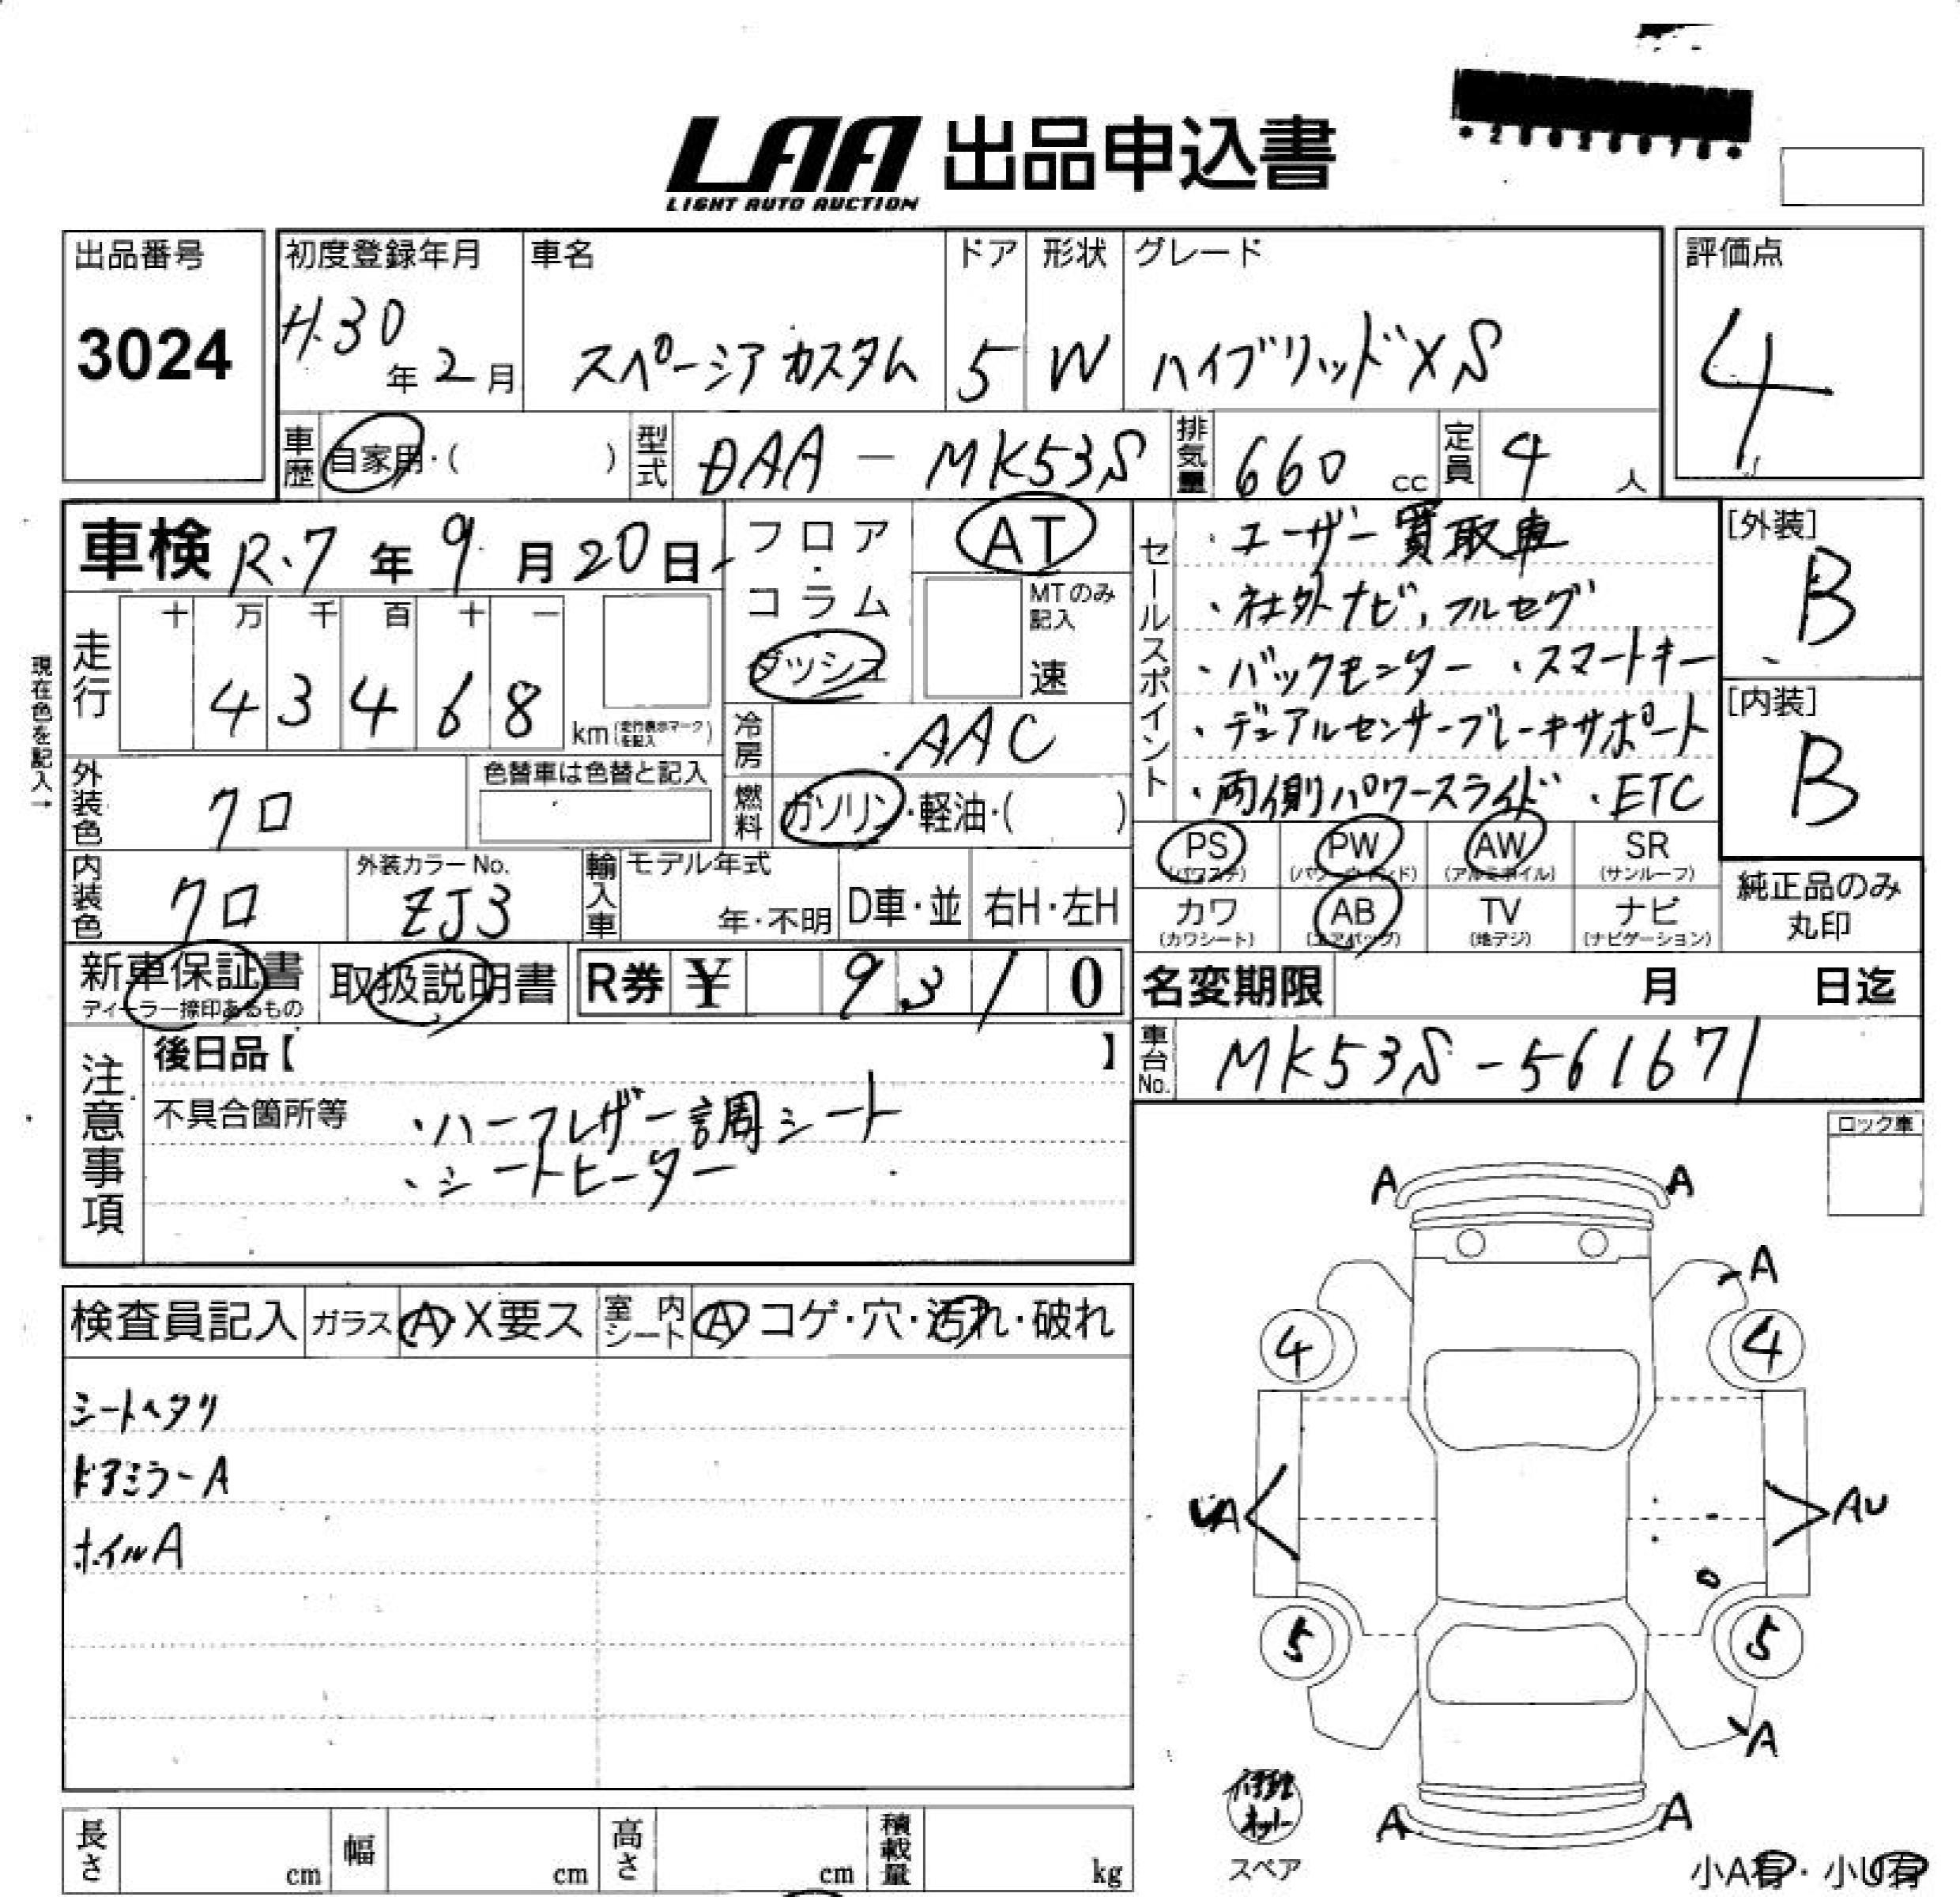 LAA 出品申込書
LIGHT AUTO AUCTION
出品番号
3024
初度登録年月
H.30年2月
車名
スペーシアカスタム
ドア
5
形状
W
グレード
ハイブリッドXS
評価点
4
車歴 自家用・( )
型式 DAA-MK53S
排気量 660cc
定員 4人
車検 R.7年9月20日
フロア・コラム
ダッシュ
AT
MTのみ記入
速
走行
十 万 千 百 十 一
4 3 4 6 8 km(走行表示マークを記入)
現在色を記入→
冷房 AAC
外装色 クロ
色替車は色替と記入
燃料 ガソリン・軽油・( )
内装色 クロ
外装カラーNo.
ZJ3
輸入車
モデル年式
年・不明
D車・並
右H・左H
新車保証書
ディーラー捺印あるもの
取扱説明書
R券 ¥ 9 3 1 0
セールスポイント
・ユーザー買取車
・社外ナビ,フルセグ
・バックモンター ・スマートキー
・デュアルセンサーブレーキサポート
・両側パワースライド ・ETC
[外装]
B
[内装]
B
PS (パワステ)
PW (パワーウィンド)
AW (アルミホイル)
SR (サンルーフ)
カワ (カワシート)
AB (エアバック)
TV (地デジ)
ナビ (ナビゲーション)
純正品のみ丸印
名変期限 月 日迄
車台No. MK53S-561671
注意事項
後日品【 】
不具合箇所等
・ハーフレザー調シート
・シートヒーター
ロック車
検査員記入
ガラス A・X要ス
室内シート A コゲ・穴・汚れ・破れ
シートヘタリ
ドアミラーA
ホイルA
A A
A
4 4
UA AU
5 5
A
A A
修理キット
スペア
小A有・小U有
長さ cm
幅 cm
高さ cm
積載量 kg